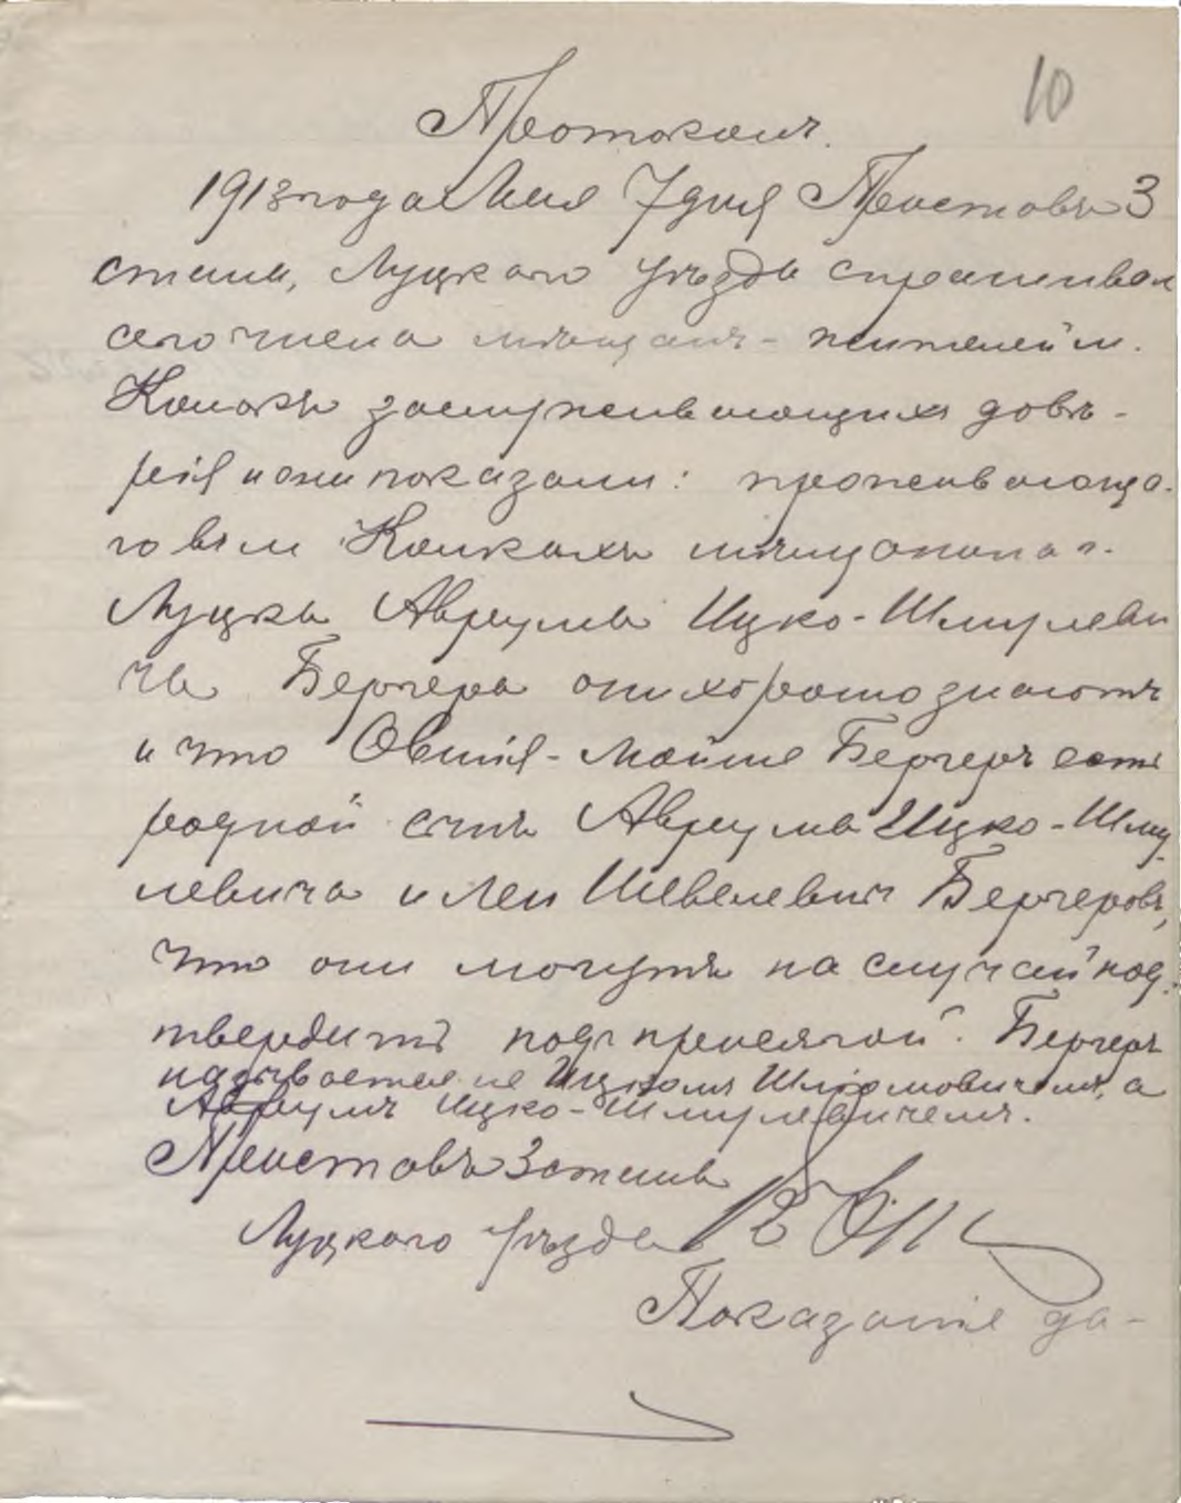 10
Протоколъ.
1913 года Мая 7 дня Приставъ 3
стана, Луцкаго уѣзда спрашивалъ
сего числа мѣщанъ-жителей м.
Колокъ заслуживающихъ довѣ-
рія и они показали: проживающа-
го въ м Колкахъ мѣщанина г.
Луцка Аврума Ицко-Шмулеви
ча Бергера они хорошо знаютъ
и что Овшія-Мойше Бергеръ есть
родной сынъ Аврума Ицко-Шму
левича и Леи Шевелевич Бергеровъ,
что они могутъ на случай под-
твердить подъ присягой. Бергеръ
называется не Ицкомъ Шлемовичемъ, а
Аврумъ Ицко-Шмулевичемъ.
Приставъ 3 стана
Луцкаго уѣзда
Показаніе да-